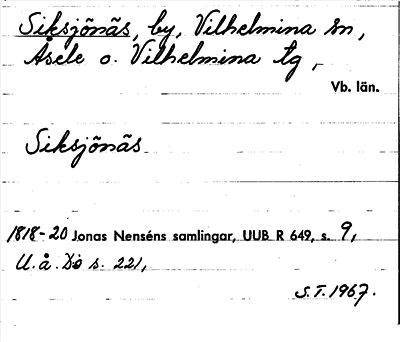 Siksjönäs, by, Vilhelmina sn,
Åsele o. Vilhelmina tg,
Vb. län.
Siksjönäs
1818-20 Jonas Nenséns samlingar, UUB R 649, s. 9,
U.å. Do s. 221,
S.T. 1967.